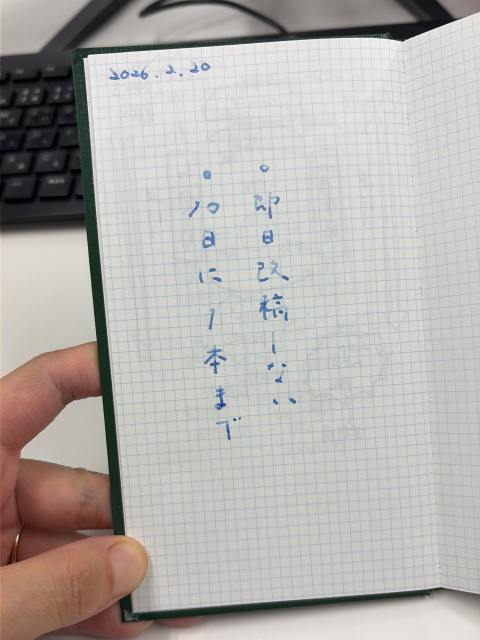 2026.2.20
・即日改稿しない
・10日に1本まで